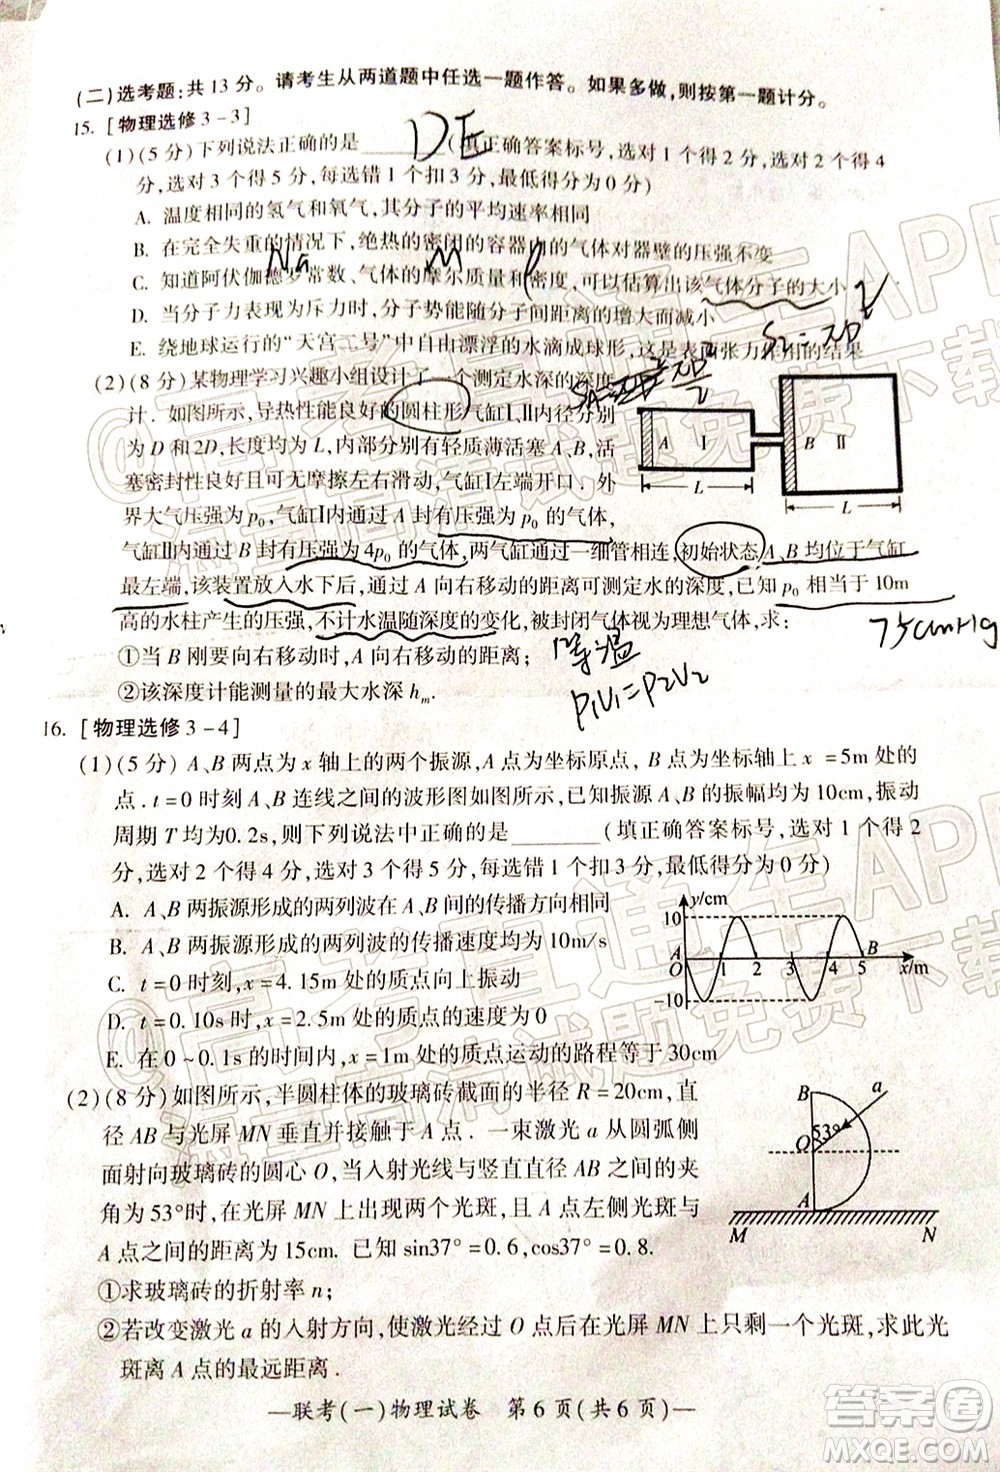 (二)选考题:共13分。请考生从两道题中任选一题作答。如果多做,则按第一题计分。
15. [物理选修3-3]
(1)(5分)下列说法正确的是______(填正确答案标号,选对1个得2分,选对2个得4
DE
分,选对3个得5分,每选错1个扣3分,最低得分为0分)
A. 温度相同的氢气和氧气,其分子的平均速率相同
B. 在完全失重的情况下,绝热的密闭的容器内的气体对器壁的压强不变
Na M ρ
C. 知道阿伏伽德罗常数、气体的摩尔质量和密度,可以估算出该气体分子的大小
D. 当分子力表现为斥力时,分子势能随分子间距离的增大而减小
E. 绕地球运行的“天宫二号”中自由漂浮的水滴成球形,这是表面张力作用的结果
(2)(8分)某物理学习兴趣小组设计了一个测定水深的深度
计. 如图所示,导热性能良好的圆柱形气缸I、II内径分别
为D和2D,长度均为L,内部分别有轻质薄活塞A、B,活
塞密封性良好且可无摩擦左右滑动,气缸I左端开口. 外
界大气压强为p₀,气缸I内通过A封有压强为p₀的气体,
气缸II内通过B封有压强为4p₀的气体,两气缸通过一细管相连,初始状态A、B均位于气缸
最左端,该装置放入水下后,通过A向右移动的距离可测定水的深度,已知p₀相当于10m
高的水柱产生的压强,不计水温随深度的变化,被封闭气体视为理想气体,求:
A I B II
L L
75cmHg
等温
p₁V₁=p₂V₂
①当B刚要向右移动时,A向右移动的距离;
②该深度计能测量的最大水深hm.
16. [物理选修3-4]
(1)(5分)A、B两点为x轴上的两个振源,A点为坐标原点, B点为坐标轴上x=5m处的
点. t=0时刻A、B连线之间的波形图如图所示,已知振源A、B的振幅均为10cm,振动
周期T均为0.2s,则下列说法中正确的是______(填正确答案标号,选对1个得2
分,选对2个得4分,选对3个得5分,每选错1个扣3分,最低得分为0分)
A. A、B两振源形成的两列波在A、B间的传播方向相同
B. A、B两振源形成的两列波的传播速度均为10m/s
C. t=0时刻,x=4.15m处的质点向上振动
D. t=0.10s时,x=2.5m处的质点的速度为0
E. 在0~0.1s的时间内,x=1m处的质点运动的路程等于30cm
y/cm
10
A B
O 1 2 3 4 5 x/m
-10
(2)(8分)如图所示,半圆柱体的玻璃砖截面的半径R=20cm,直
径AB与光屏MN垂直并接触于A点. 一束激光a从圆弧侧
面射向玻璃砖的圆心O,当入射光线与竖直直径AB之间的夹
角为53°时,在光屏MN上出现两个光斑,且A点左侧光斑与
A点之间的距离为15cm. 已知sin37°=0.6,cos37°=0.8.
①求玻璃砖的折射率n;
②若改变激光a的入射方向,使激光经过O点后在光屏MN上只剩一个光斑,求此光
斑离A点的最远距离.
B a
O 53°
A
M N
—联考(一)物理试卷 第6页(共6页)—
答案圈
MXQE.COM